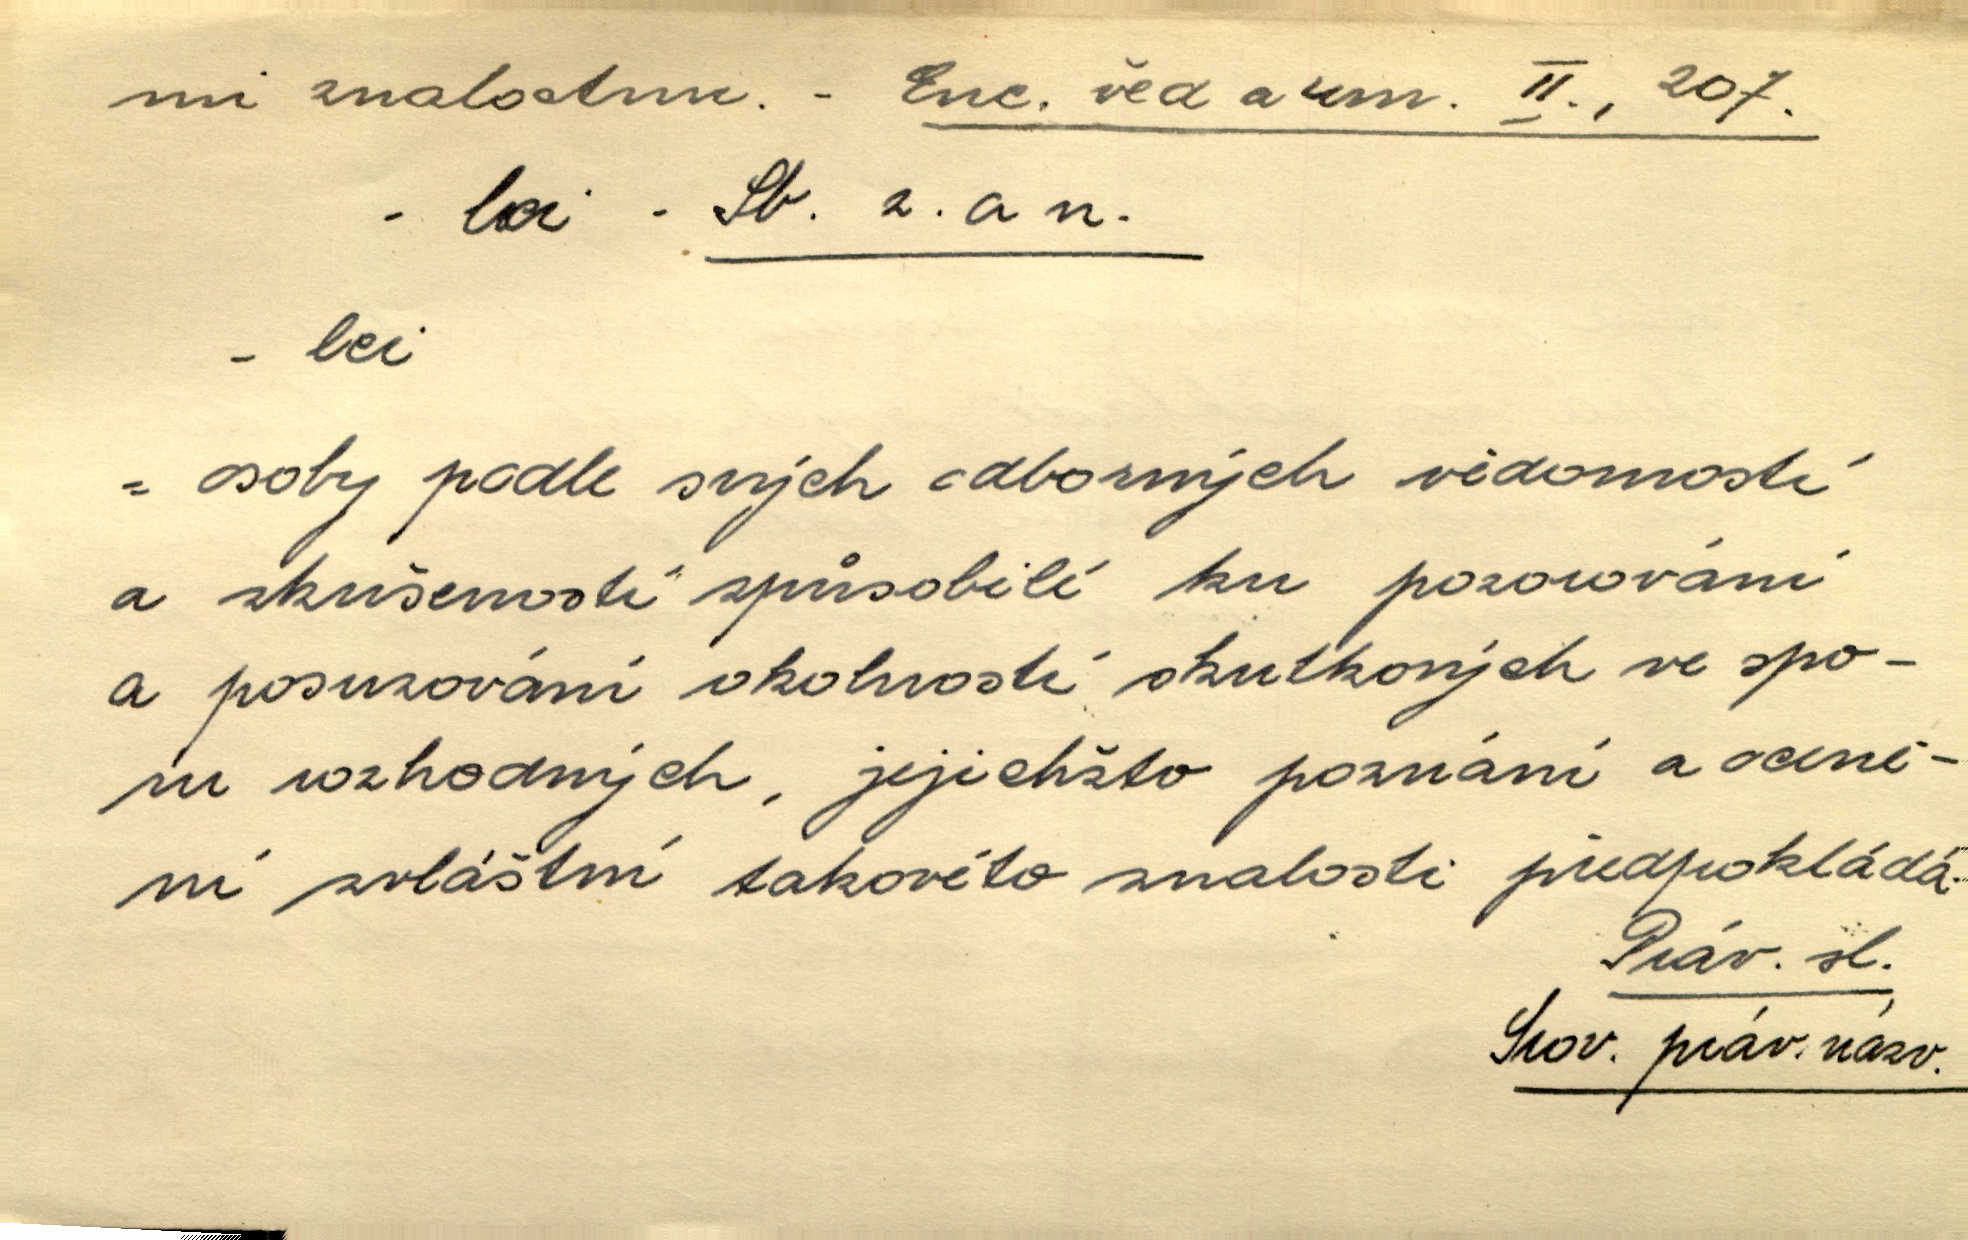 mi znalostmi. - Enc. věd a um. II., 207.
- lci - Sb. z. a n.
- lci
= osoby podle svých odborných vědomostí
a zkušeností způsobilí ku pozorování
a posuzování okolností skutkových ve spo-
ru rozhodných, jejichžto poznání a oceně-
ní zvláštní takovéto znalosti předpokládá.
Práv. sl.
Srov. práv. názv.